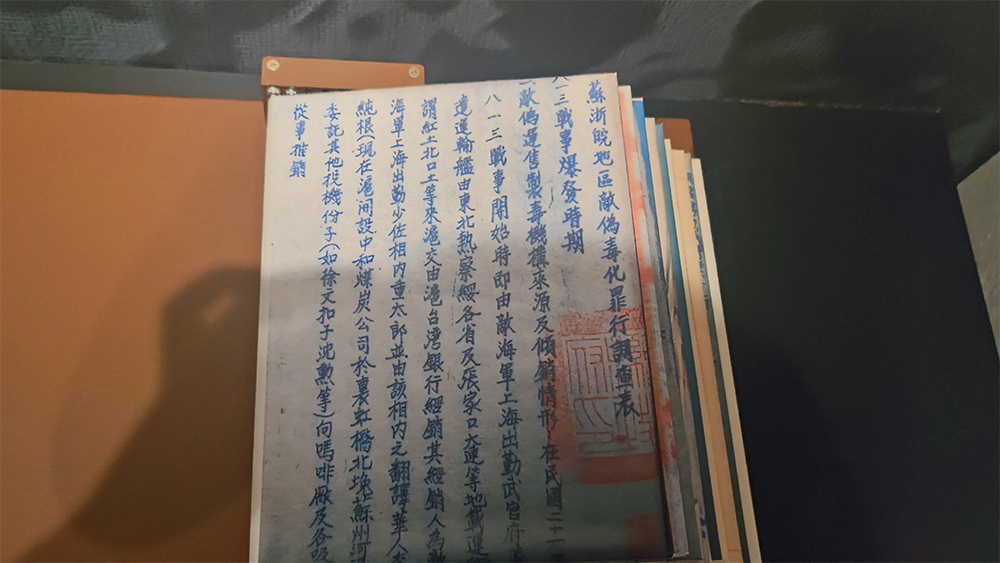 蘇浙皖地區敵偽毒化罪行調查表
八一三戰事爆發時期
一敵偽運售製毒機構來源及傾銷情形 在民國二十
八一三戰事開始時即由敵海軍上海出勤武官府
遣運輸艦由東北熱察綏各省及張家口大連等地載運
謂紅土北口土等來滬交由滬台灣銀行經銷其經銷人為敵
海軍上海出勤少佐相內重太郎並由該相內之翻譯華人李
純根(現在滬開設中和煤炭公司於裏虹橋北堍蘇州河
委託其他投機份子(如徐文扣子沈勳等)向嗎啡廠及各吸
從事推銷